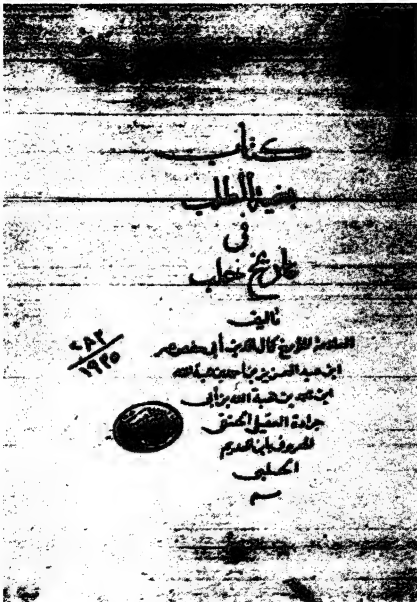 كتاب
بغية الطلب
في
تاريخ حلب
تأليف
العلامة المؤرخ كمال الدين أبي حفص عمر
ابن عبد العزيز بن أحمد بن هبة الله
ابن محمد بن هبة الله بن أبي
جرادة العقيلي الحنفي
المعروف بابن العديم
الحلبي
١٩٢٥